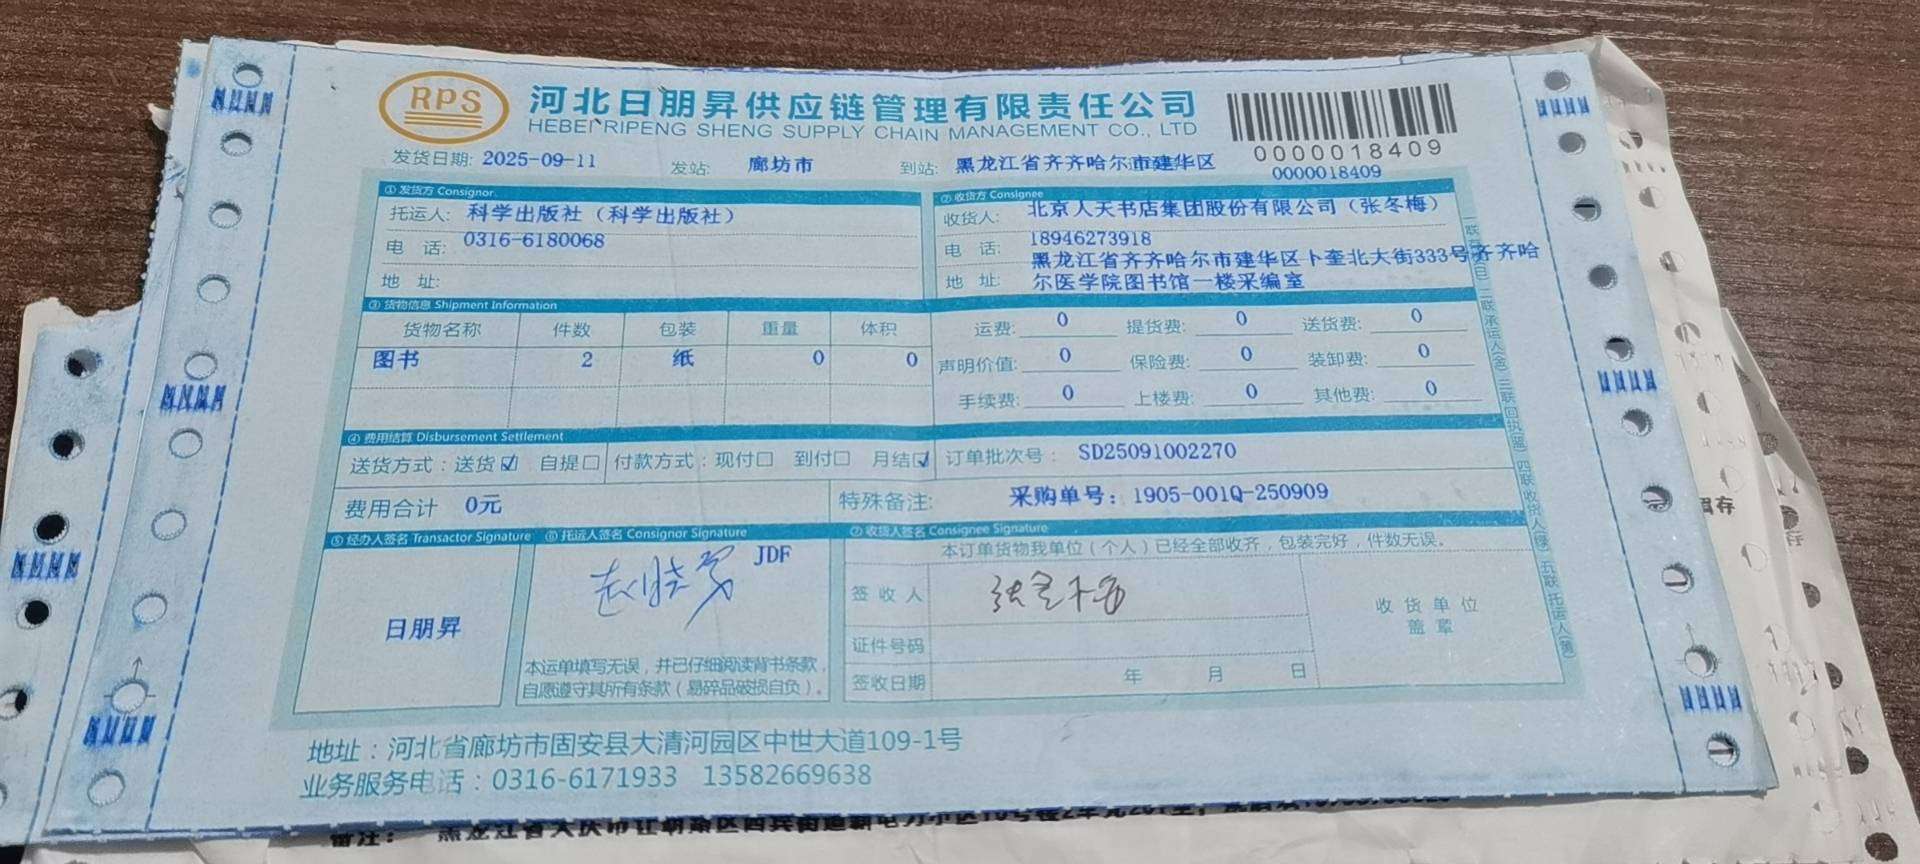 RPS
河北日朋昇供应链管理有限责任公司
HEBEI RIPENG SHENG SUPPLY CHAIN MANAGEMENT CO., LTD
0000018409
发货日期: 2025-09-11 发站: 廊坊市 到站: 黑龙江省齐齐哈尔市建华区 0000018409
① 发货方 Consignor
托运人: 科学出版社（科学出版社）
电 话: 0316-6180068
地 址:
② 收货方 Consignee
收货人: 北京人天书店集团股份有限公司（张冬梅）
电 话: 18946273918
地 址: 黑龙江省齐齐哈尔市建华区卜奎北大街333号齐齐哈
尔医学院图书馆一楼采编室
③ 货物信息 Shipment Information
货物名称 件数 包装 重量 体积
图书 2 纸 0 0
运费: 0 提货费: 0 送货费: 0
声明价值: 0 保险费: 0 装卸费: 0
手续费: 0 上楼费: 0 其他费: 0
④ 费用结算 Disbursement Settlement
送货方式：送货☑ 自提☐ 付款方式：现付☐ 到付☐ 月结☑ 订单批次号： SD25091002270
费用合计 0元 特殊备注: 采购单号: 1905-001Q-250909
⑤ 经办人签名 Transactor Signature
日朋昇
⑥ 托运人签名 Consignor Signature
JDF
本运单填写无误，并已仔细阅读背书条款，
自愿遵守其所有条款（易碎品破损自负）。
⑦ 收货人签名 Consignee Signature
本订单货物我单位（个人）已经全部收齐，包装完好，件数无误。
签 收 人 张冬梅
证件号码
签收日期 年 月 日
收 货 单 位
盖 章
地址：河北省廊坊市固安县大清河园区中世大道109-1号
业务服务电话：0316-6171933 13582669638
留存
备注：